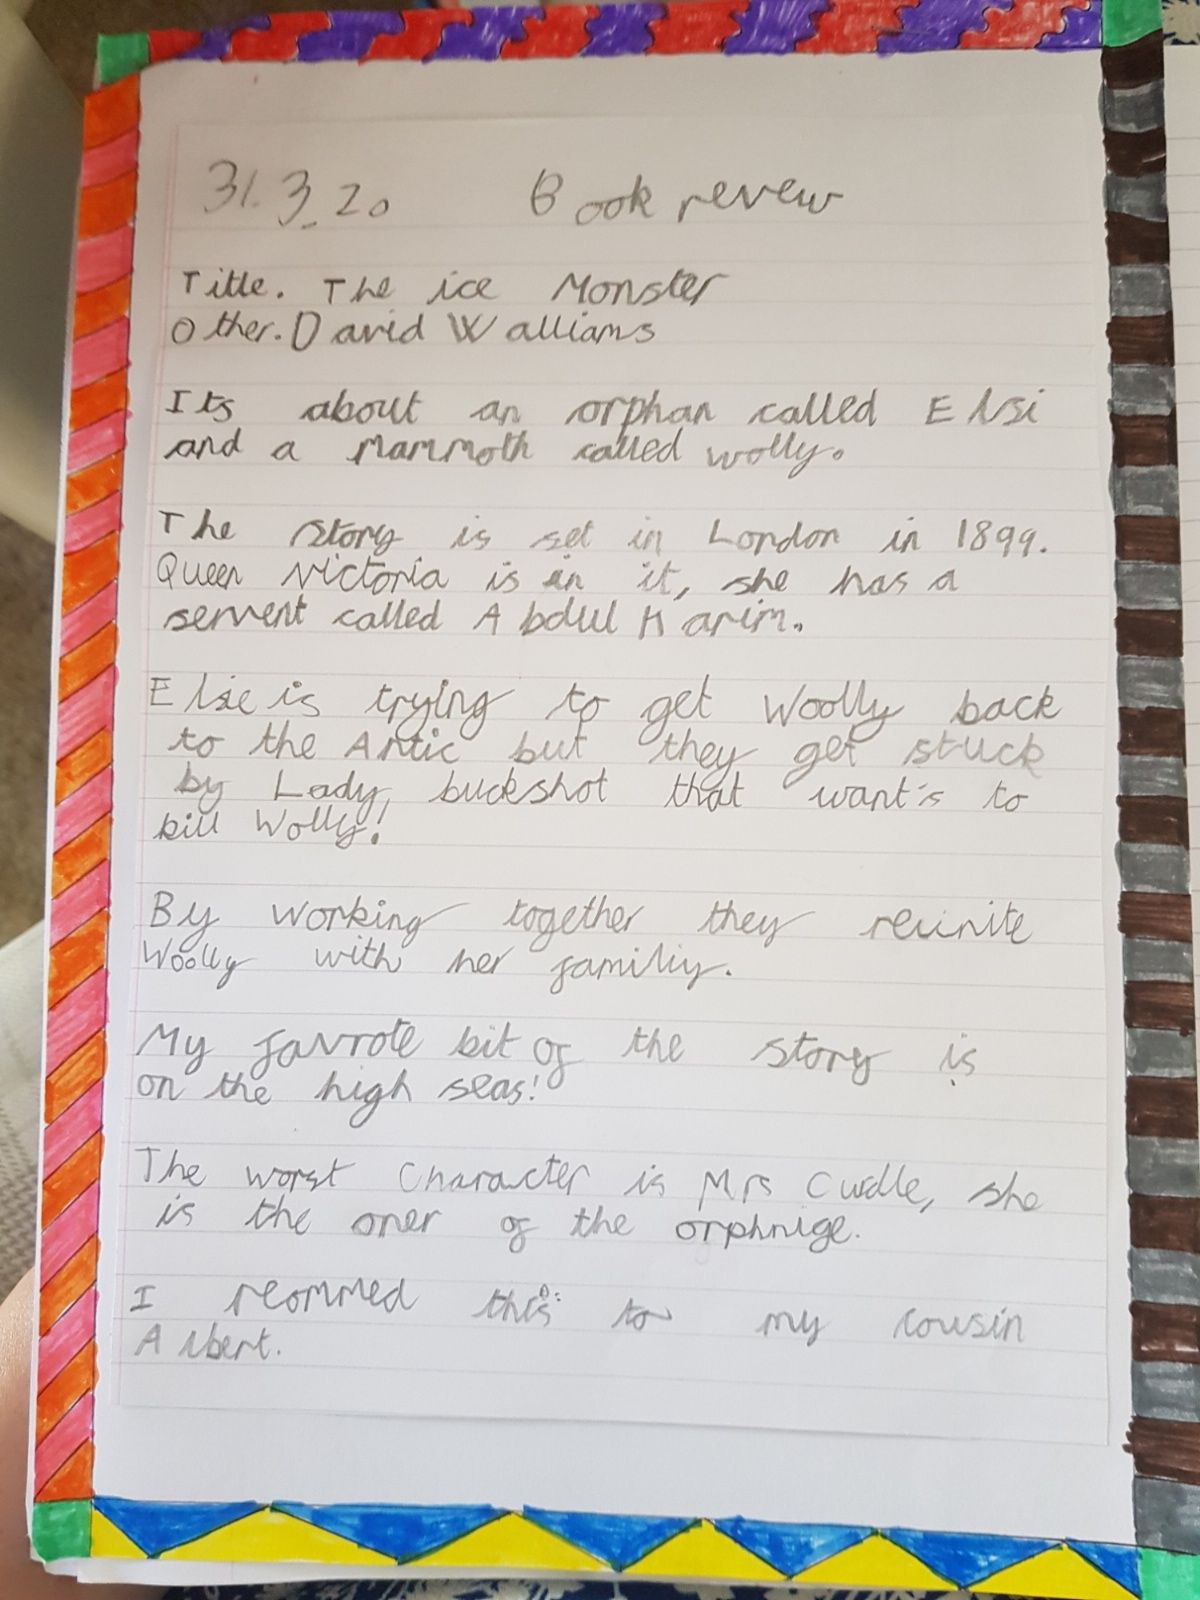 31.3.20 Book revew
Title. The ice Monster
Other. David Walliams
Its about an orphan called Elsi
and a Mammoth called wolly.
The story is set in London in 1899.
Queen victoria is in it, she has a
servent called Abdul Harim.
Elsie is trying to get Woolly back
to the Artic but they get stuck
by Lady, buckshot that want's to
kill Wolly!
By working together they reunite
Woolly with her familiy.
My favrote bit of the story is
on the high seas!
The worst Character is Mrs Cudle, she
is the oner of the orphnige.
I reommed this to my cousin
Albert.